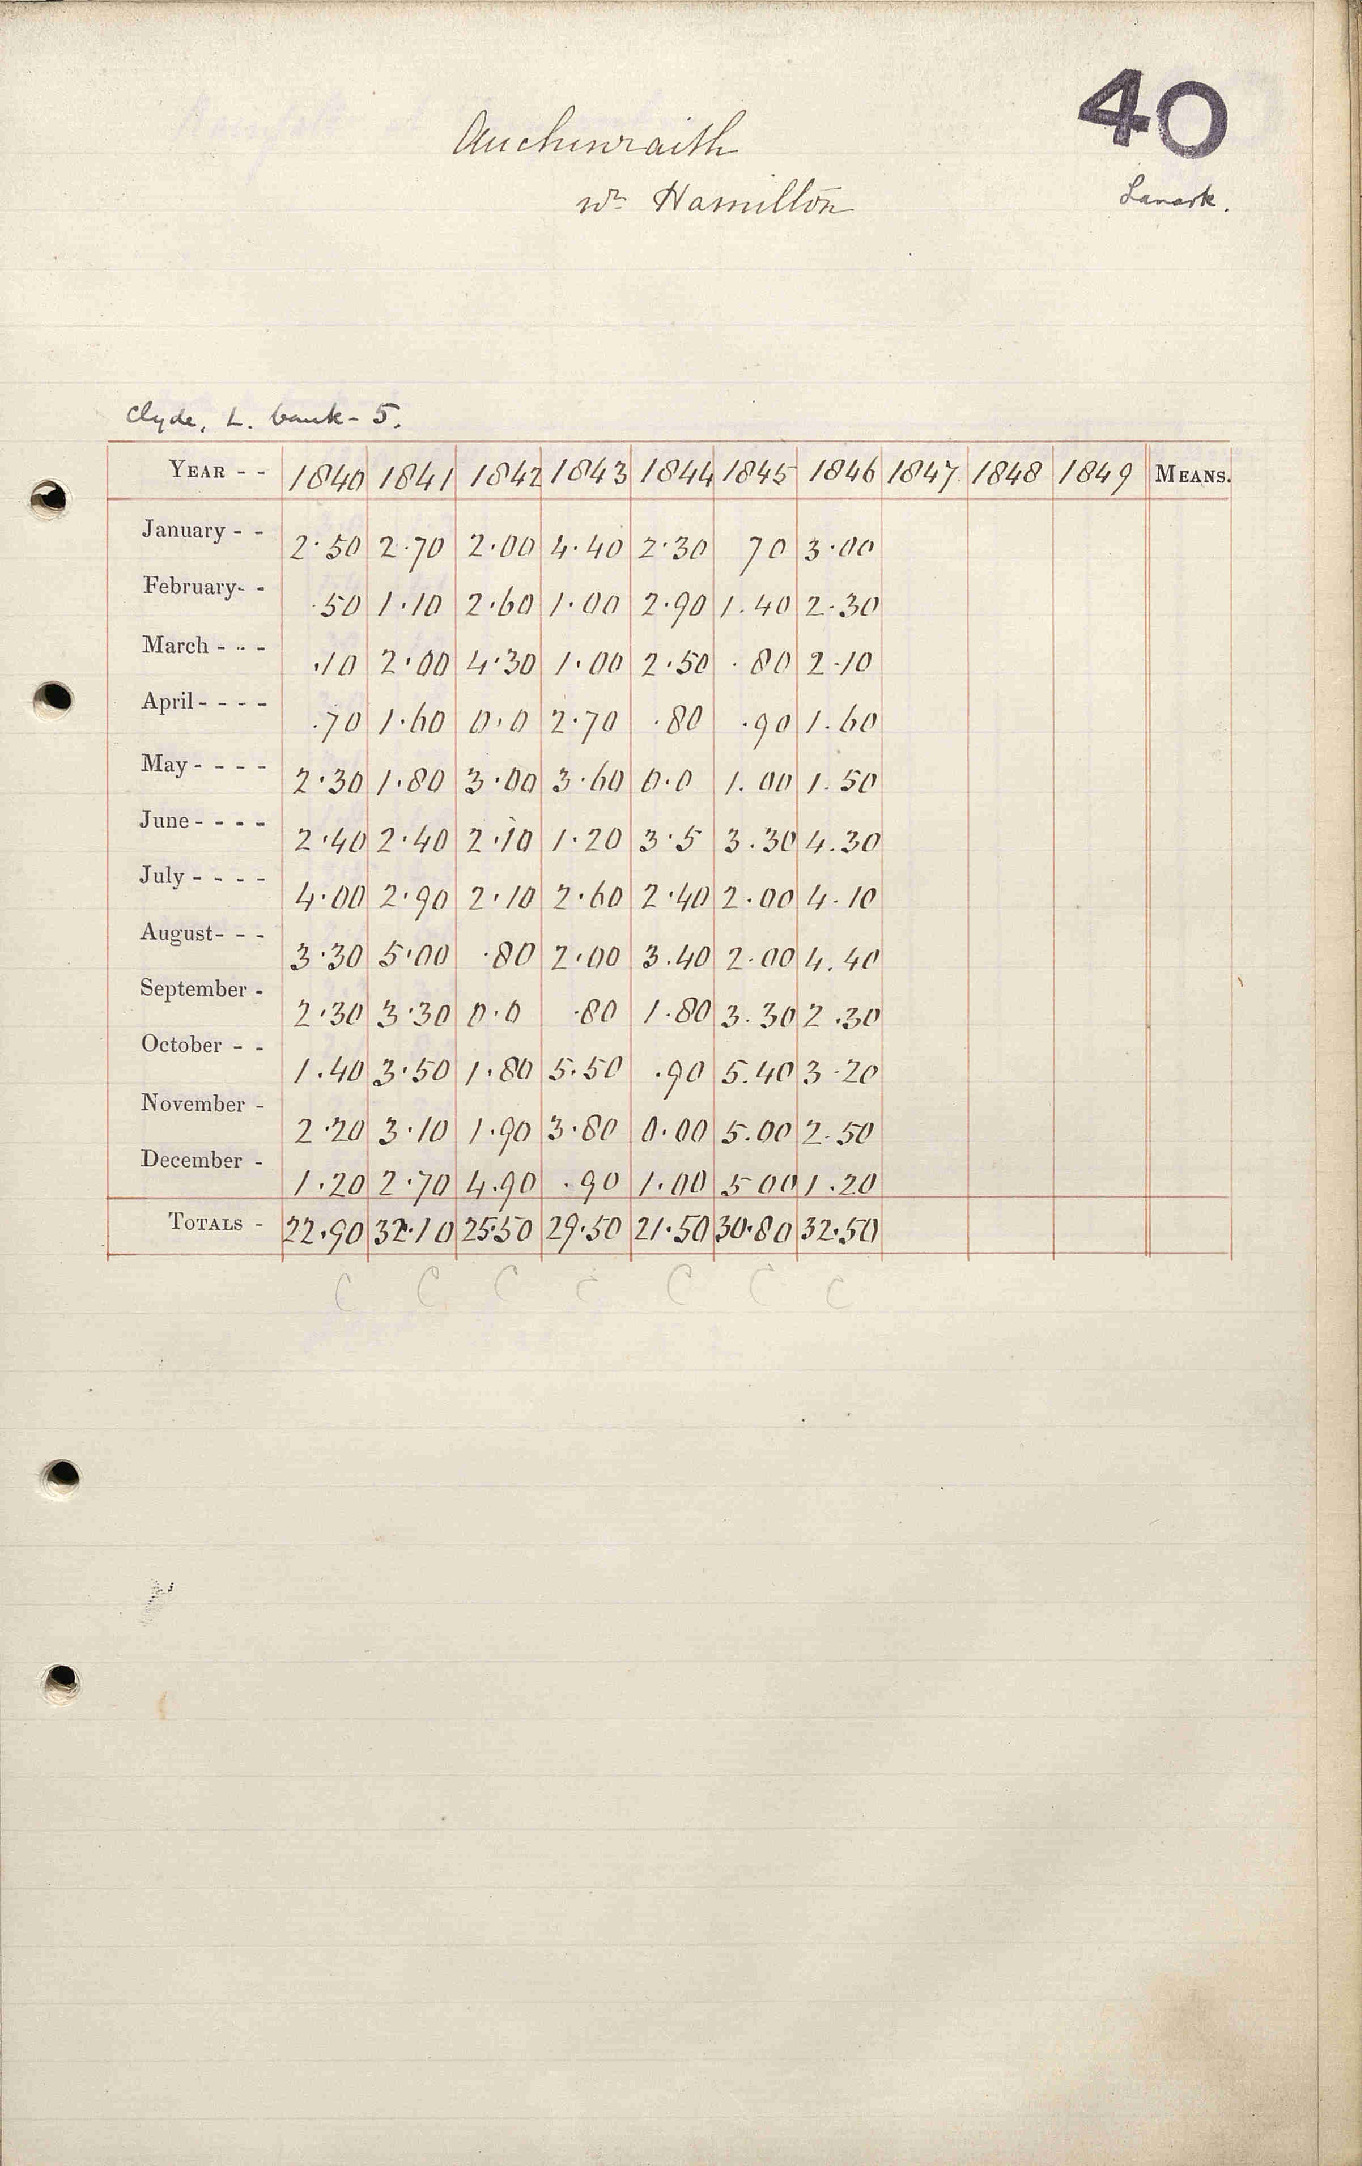 40
Auchinraith
nr Hamilton
Lanark.
Clyde, L. bank - 5.
YEAR - - 1840 1841 1842 1843 1844 1845 1846 1847 1848 1849 MEANS.
January - - 2.50 2.70 2.00 4.40 2.30 70 3.00
February - - .50 1.10 2.60 1.00 2.90 1.40 2.30
March - - - .10 2.00 4.30 1.00 2.50 .80 2.10
April - - - - .70 1.60 0.0 2.70 .80 .90 1.60
May - - - - 2.30 1.80 3.00 3.60 0.0 1.00 1.50
June - - - - 2.40 2.40 2.10 1.20 3.5 3.30 4.30
July - - - - 4.00 2.90 2.10 2.60 2.40 2.00 4.10
August - - - 3.30 5.00 .80 2.00 3.40 2.00 4.40
September - 2.30 3.30 0.0 .80 1.80 3.30 2.30
October - - 1.40 3.50 1.80 5.50 .90 5.40 3.20
November - 2.20 3.10 1.90 3.80 0.00 5.00 2.50
December - 1.20 2.70 4.90 .90 1.00 5 00 1.20
TOTALS - 22.90 32.10 25.50 29.50 21.50 30.80 32.50
C C C C C C C